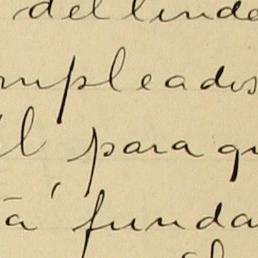 del linde
mpleados
l para qu
tá funda